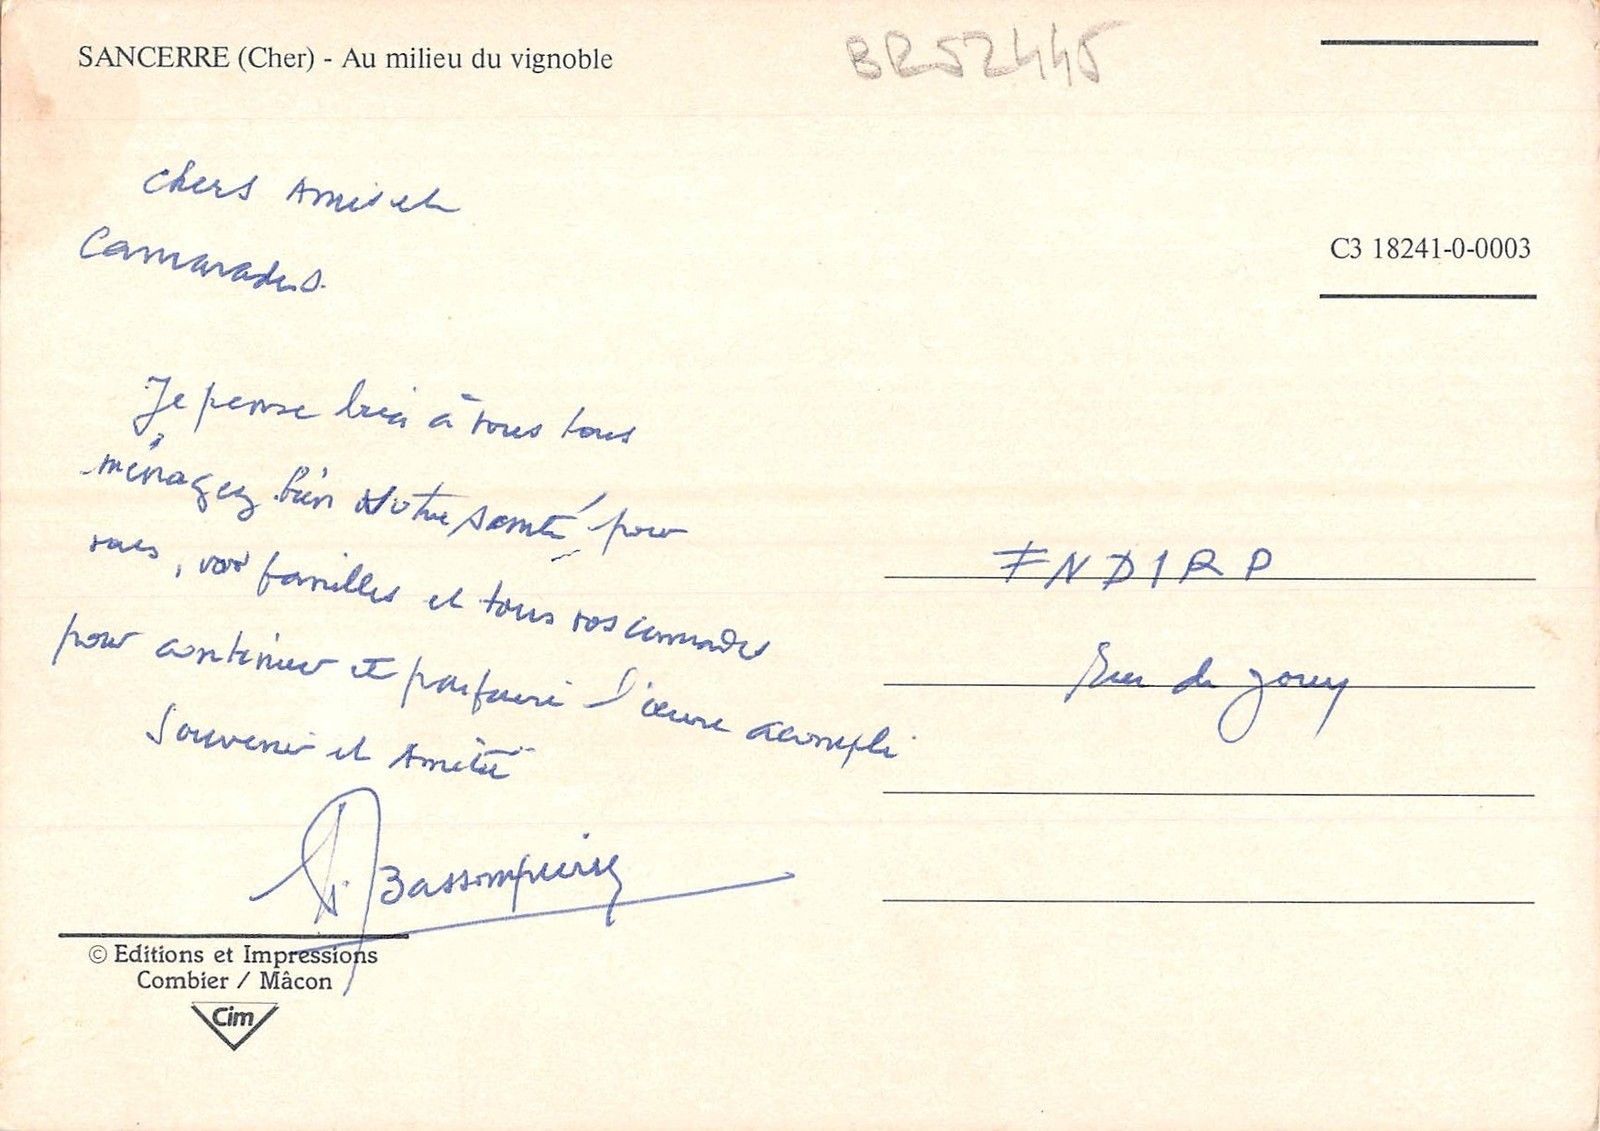 SANCERRE (Cher) - Au milieu du vignoble
BR52445
C3 18241-0-0003
Chers Amis et
Camarades.
Je pense bien à vous tous
ménagez bien Notre santé pour
vous, vos familles et tous vos camarades
pour continuer et parfaire l'œuvre accompli
Souvenir et Amitié
Bassompierre
FNDIRP
Rue de Jouy
© Editions et Impressions
Combier / Mâcon
Cim